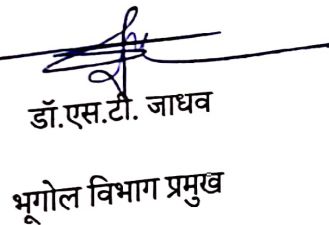 डॉ.एस.टी. जाधव
भूगोल विभाग प्रमुख